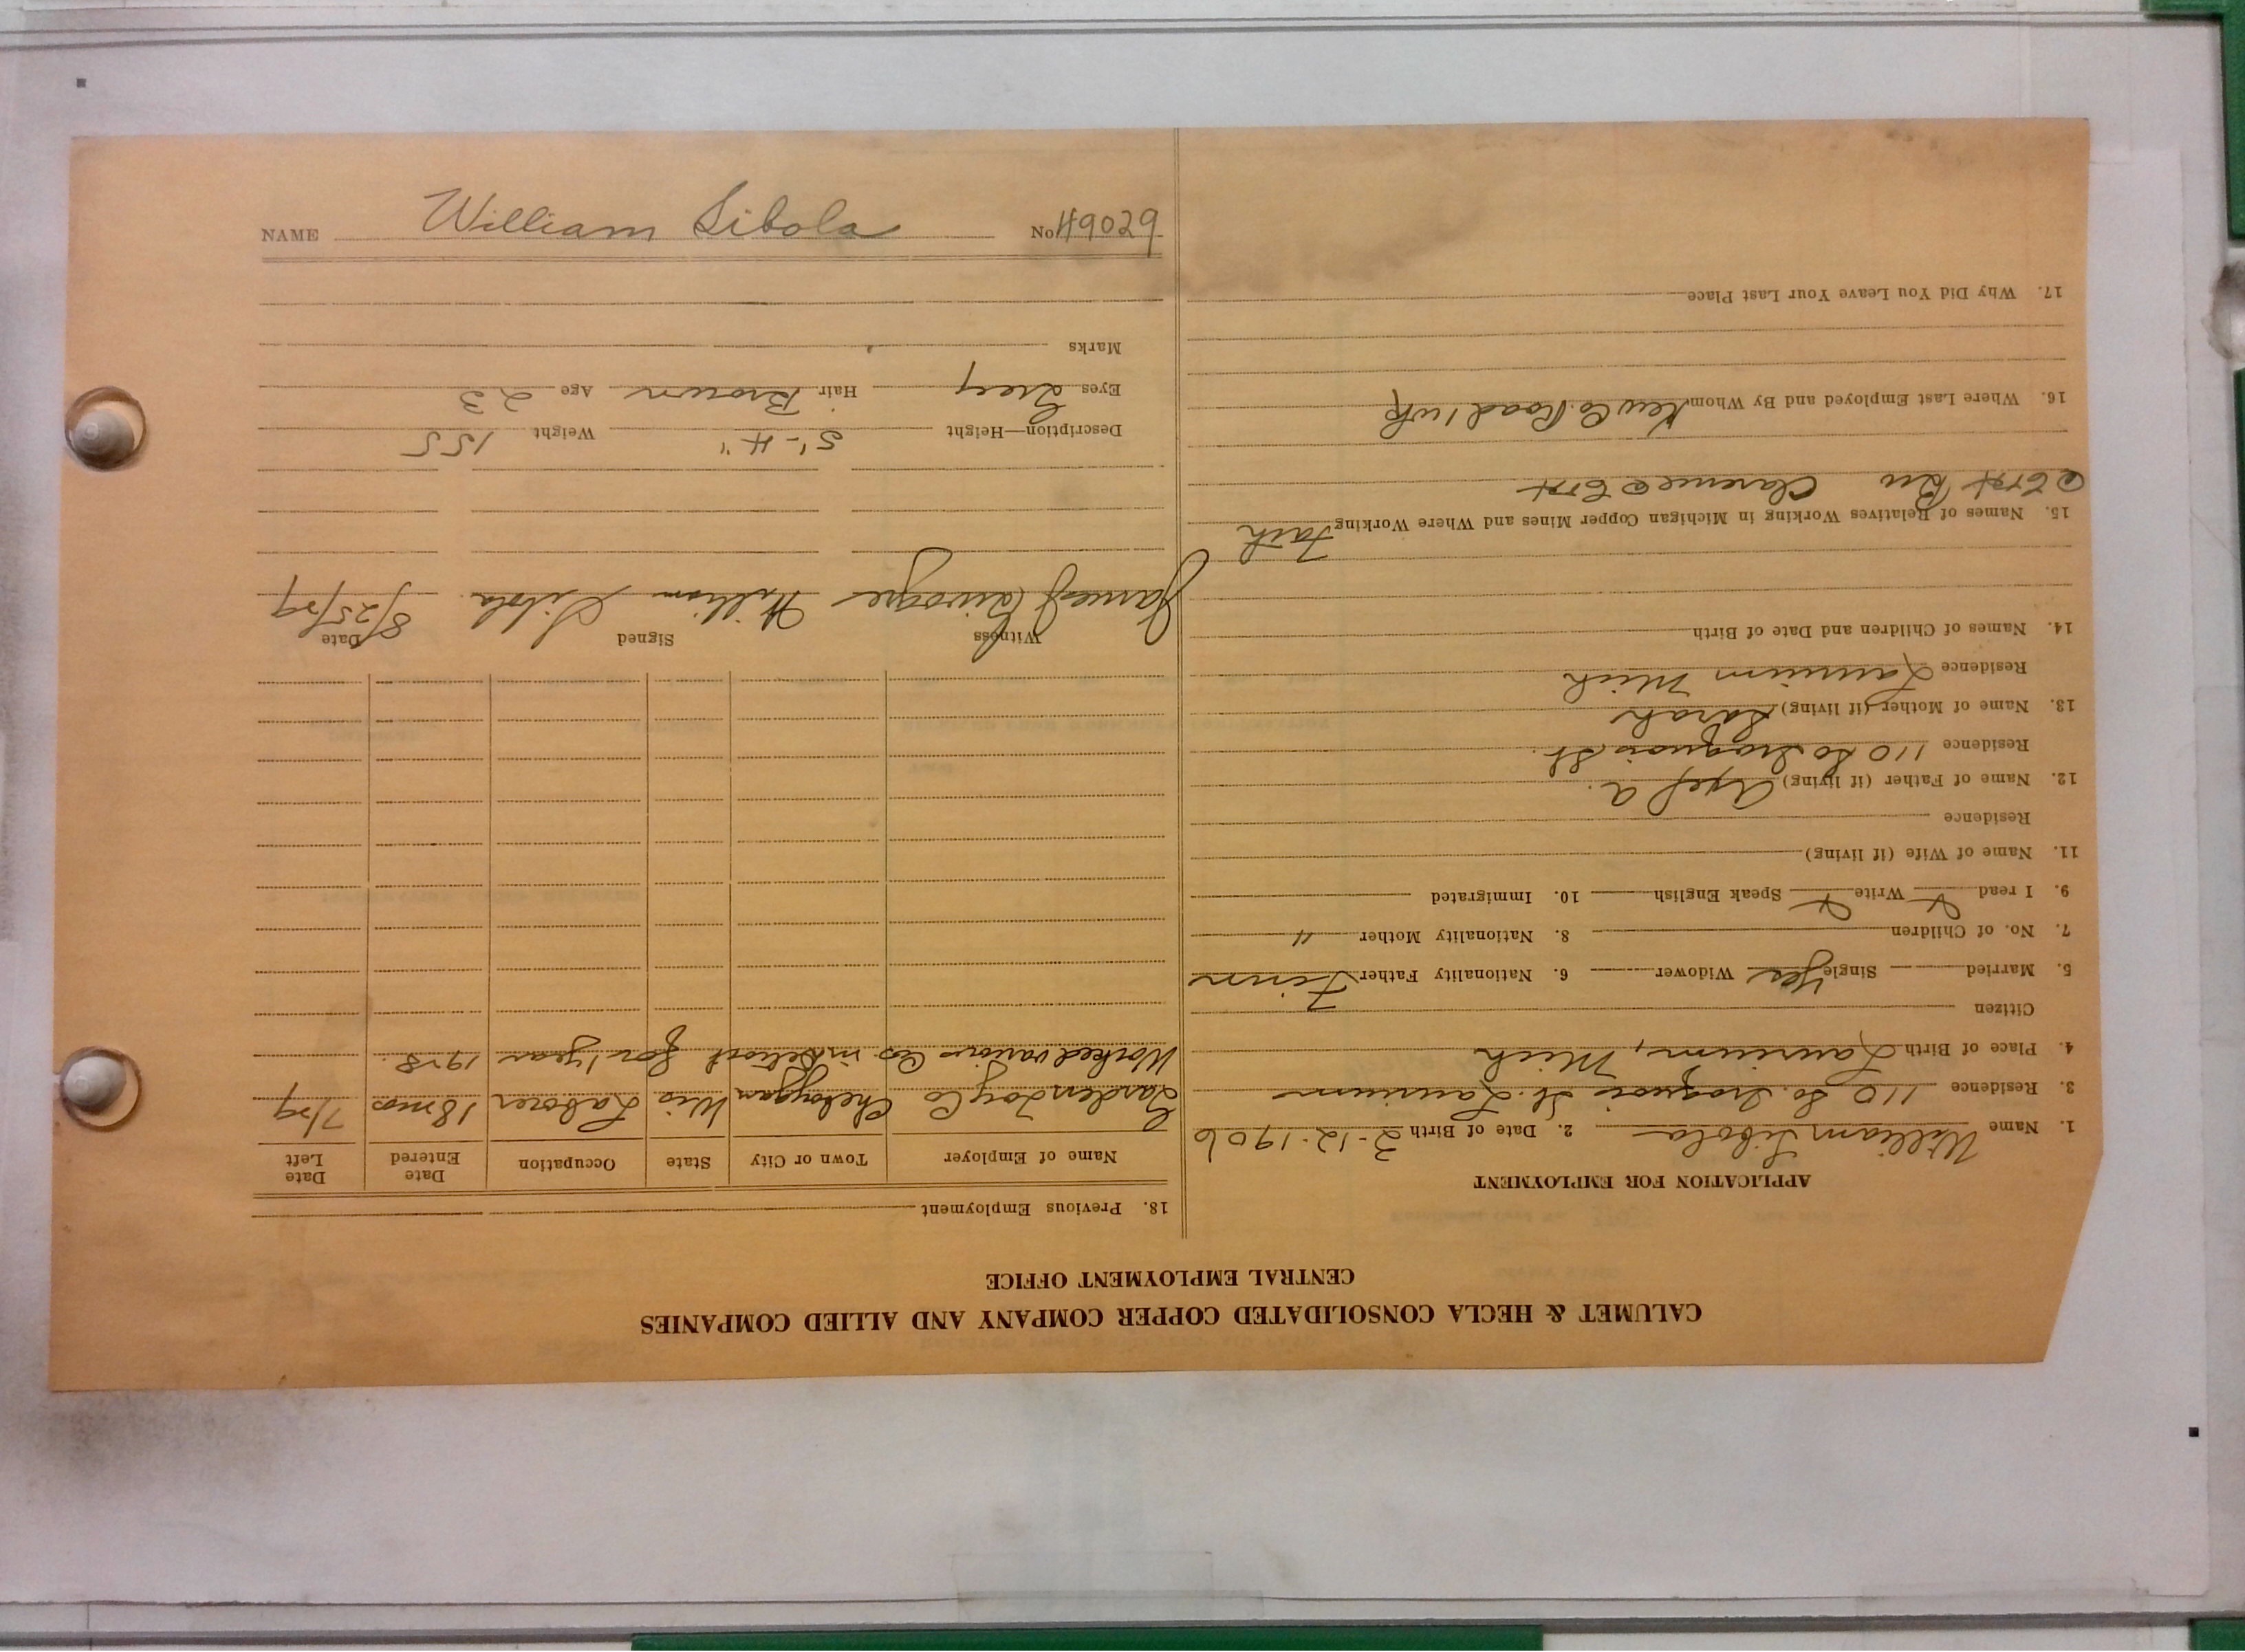 CALUMET & HECLA CONSOLIDATED COPPER COMPANY AND ALLIED COMPANIES
CENTRAL EMPLOYMENT OFFICE
APPLICATION FOR EMPLOYMENT
1. Name William Sibola 2. Date of Birth 2-12-1906
3. Residence 110 So. Iroquois St. Laurium
4. Place of Birth Laurium, Mich
Citizen
5. Married Single Yes Widower 6. Nationality Father Finn
7. No. of Children 8. Nationality Mother "
9. I read X Write X Speak English 10. Immigrated
11. Name of Wife (if living)
Residence
12. Name of Father (if living) Axel A.
Residence 110 So Iroquois St.
13. Name of Mother (if living) Sarah
Residence Laurium Mich
14. Names of Children and Date of Birth
15. Names of Relatives Working in Michigan Copper Mines and Where Working Fath
Clarence
16. Where Last Employed and By Whom Kew Co. Road 1 wk
17. Why Did You Leave Your Last Place
18. Previous Employment
Name of Employer Town or City State Occupation Date Entered Date Left
Garden Toy Co Cheboygan Wis Laborer 18 mos 7/29
Worked various Cos in Detroit for 1 year 1928.
Witness Signed Date
James William Sibola 8/25/29
Description—Height 5'-4" Weight 155
Eyes Grey Hair Brown Age 23
Marks
NAME William Sibola No 49029